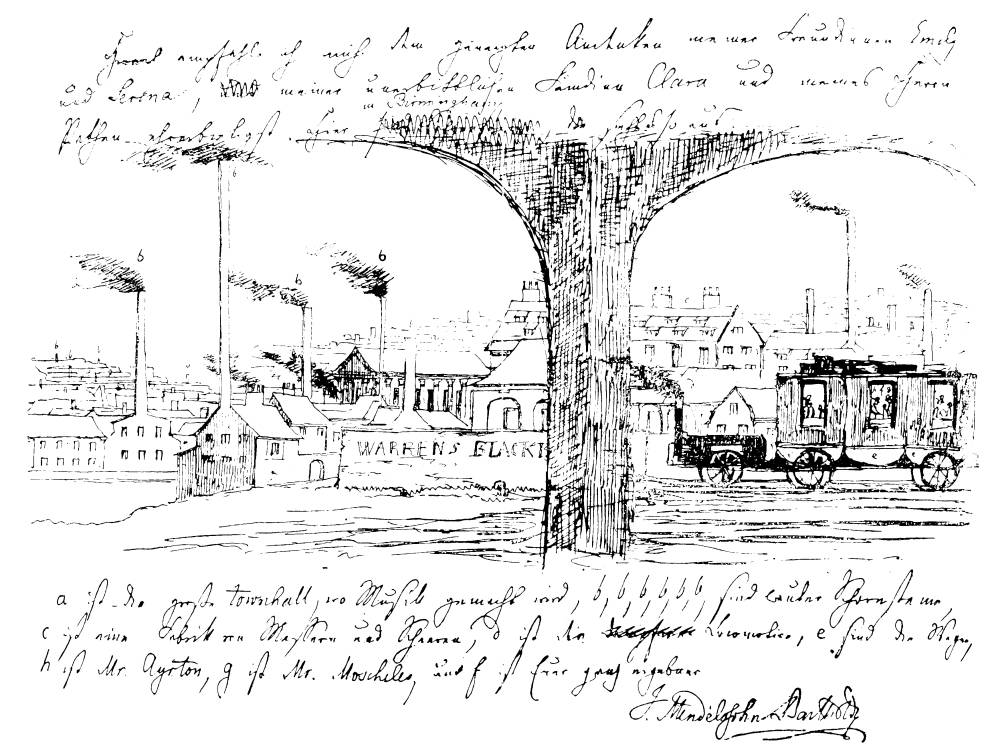 empfehle ich mich dem geneigten Andenken meiner Freundinnen Emily
und Serena, meiner unerbittlichen Feindin Clara und meines Herrn
in Birmingham
Pathen ehrerbietigst. Hier da sieht es so aus
b
b
b
b
WARRENS BLACKI
e
a ist die große Townhall, wo Musik gemacht wird, b, b, b, b, b, b, sind lauter Schornsteine,
c ist eine Fabrik von Messern und Scheeren, d ist die Locomotive, e sind die Wagen,
h ist Mr. Ayrton, g ist Mr. Moscheles, und f ist Euer ganz
F. Mendelssohn Bartholdy